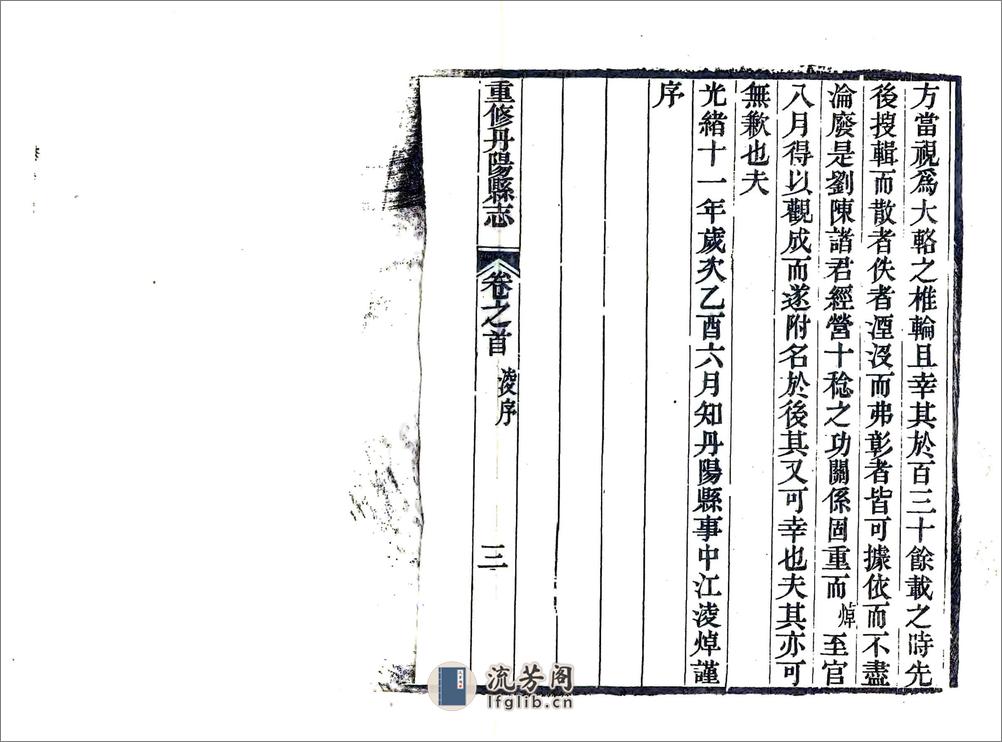 方當視爲大輅之椎輪且幸其於百三十餘載之時先
後搜輯而散者佚者湮沒而弗彰者皆可據依而不盡
淪廢是劉陳諸君經營十稔之功關係固重而焯至官
八月得以觀成而遂附名於後其又可幸也夫其亦可
無歉也夫
光緒十一年歲次乙酉六月知丹陽縣事中江淩焯謹
序
重修丹陽縣志 卷之首 淩序 三
流芳阁
lfglib.cn